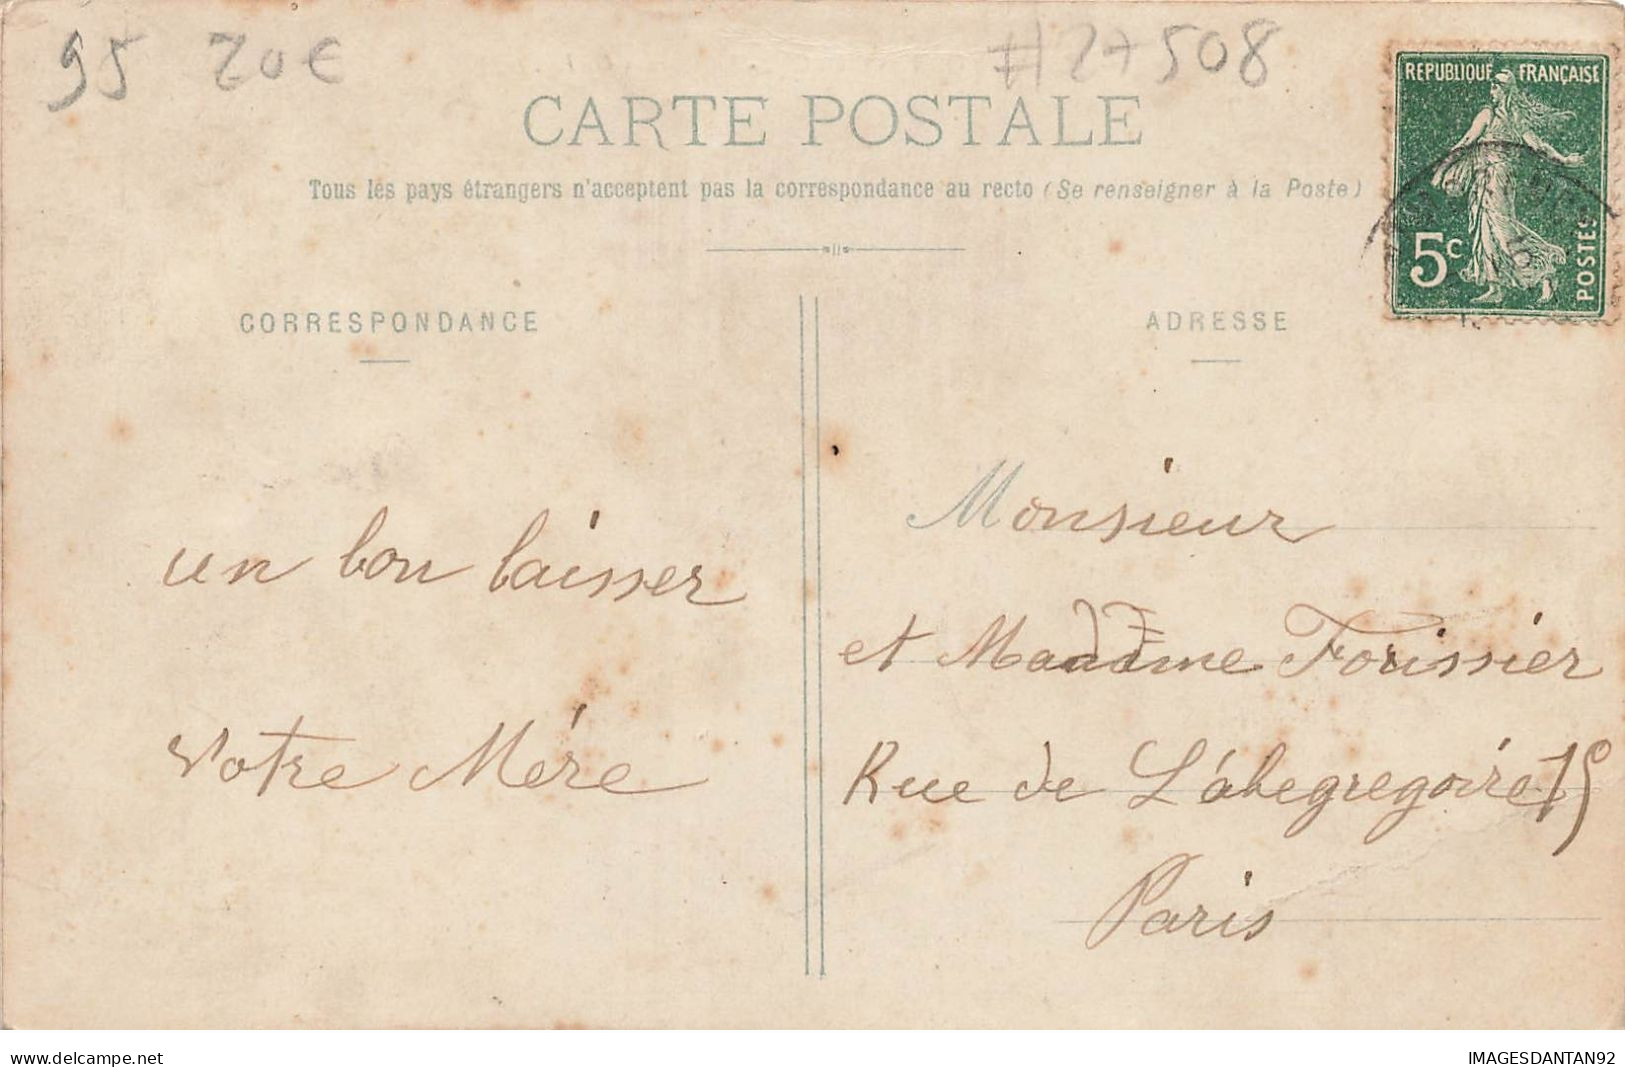 95 20€ #27508
CARTE POSTALE
Tous les pays étrangers n'acceptent pas la correspondance au recto (Se renseigner à la Poste)
REPUBLIQUE FRANÇAISE
5c
POSTES
CORRESPONDANCE
un bon baisser
Votre Mére
ADRESSE
Monsieur
et Madame Forissier
Rue de L'abegregoire 15
Paris
www.delcampe.net
IMAGESDANTAN92